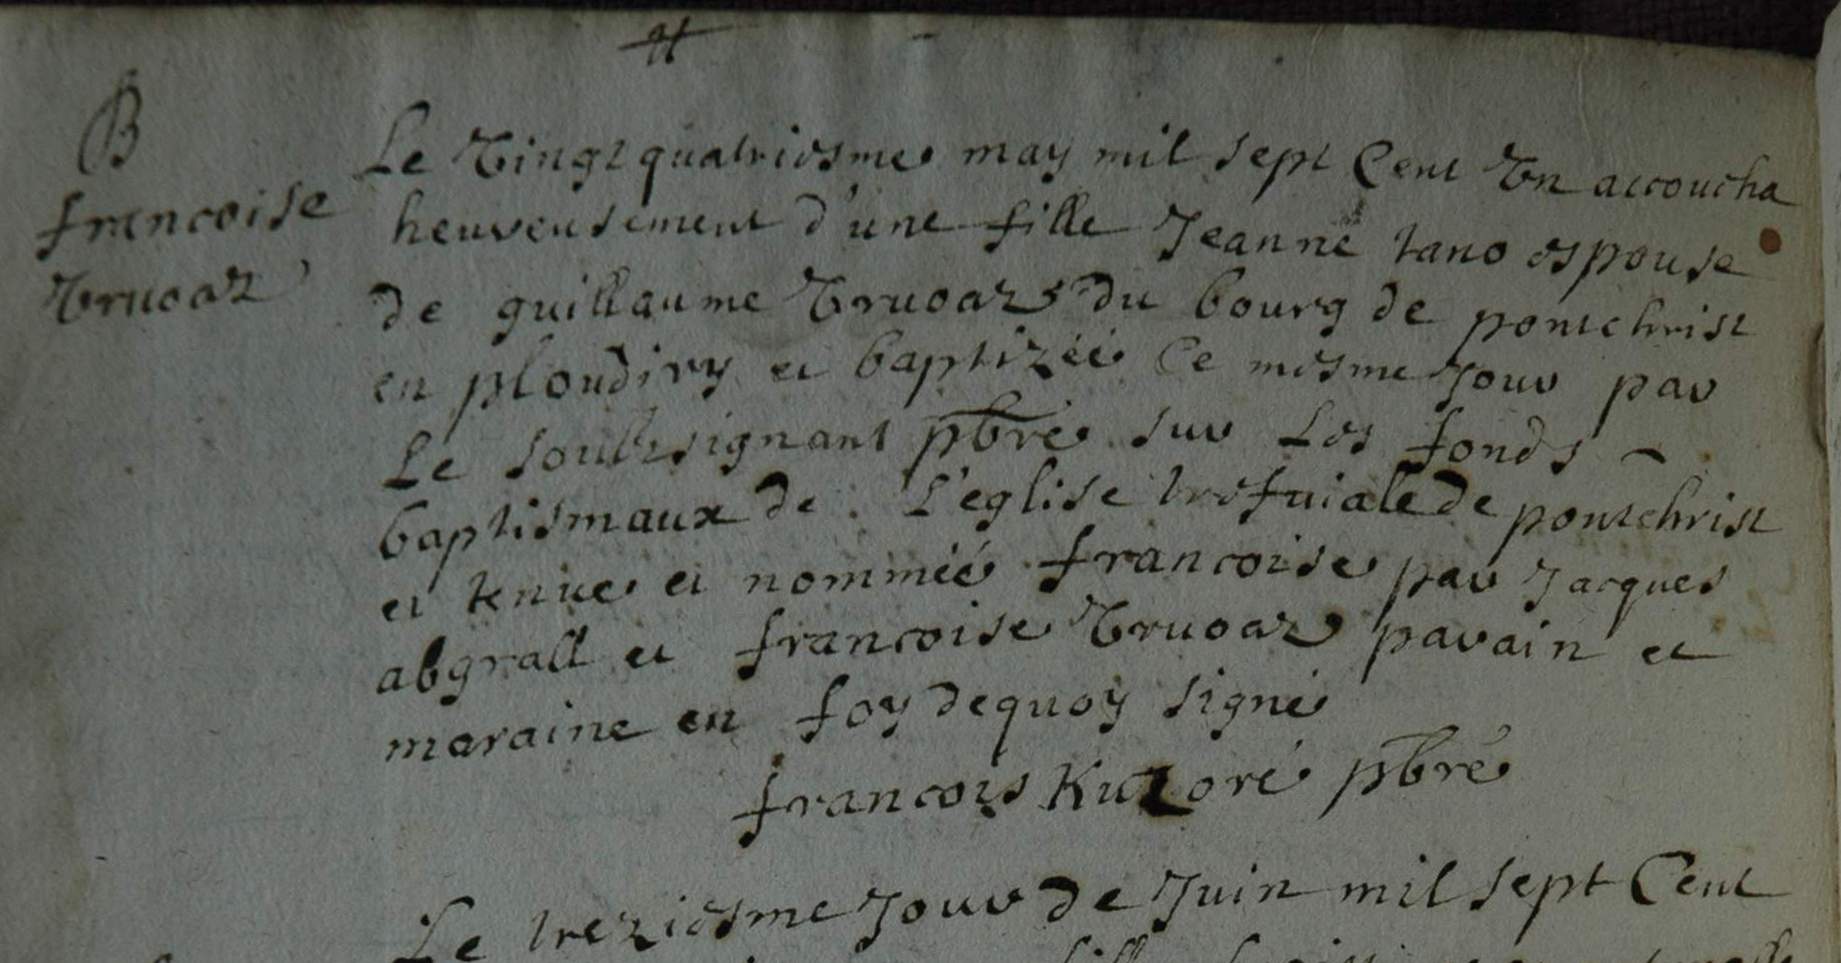 B
francoise
Vruoaz
Le Vingt quatriesme may mil sept Cent Vn accoucha
heureusement d'une fille Jeanne tano espouse
de guillaume Vruoaz du bourg de pontchrist
en ploudiry et baptizéé Ce mesme Jour par
Le soubsignant pbre sur Les fonds
baptismaux de L'eglise trefuiale de pontchrist
et tenue et nomméé francoise par Jacques
abgrall et francoise Vruoaz parain et
maraine en foy dequoy signé
francois pbre
Le treziesme Jour de Juin mil sept Cent